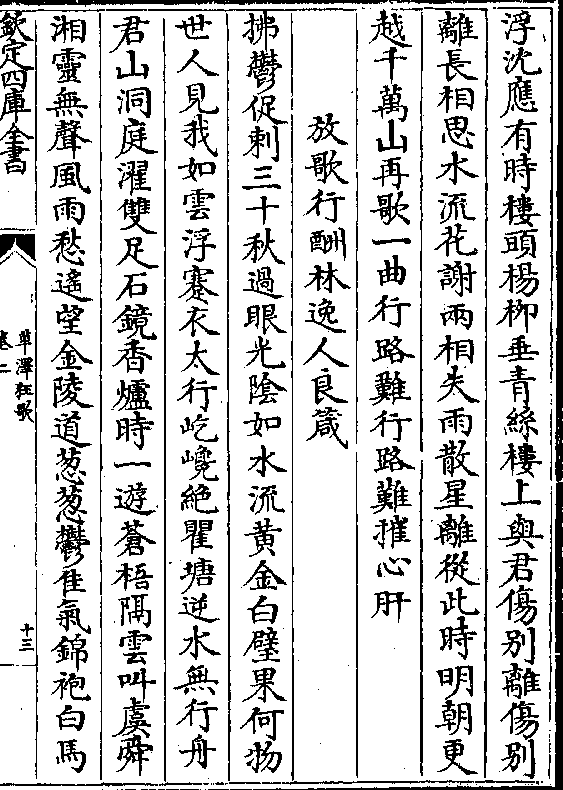 浮沈應有時樓頭楊柳垂青絲樓上與君傷别離傷别
離長相思水流花謝兩相失雨散星離從此時明朝更
越千萬山再歌一曲行路難行路難摧心肝
放歌行酬林逸人良箴
拂鬱促刺三十秋過眼光陰如水流黄金白璧果何物
世人見我如雲浮蹇衣太行屹巉絶瞿塘逆水無行舟
君山洞庭濯雙足石鏡香爐時一遊蒼梧隔雲叫虞舜
湘靈無聲風雨愁遙望金陵道葱葱鬱佳氣錦袍白馬
欽定四庫全書
草澤狂歌
卷二
十三